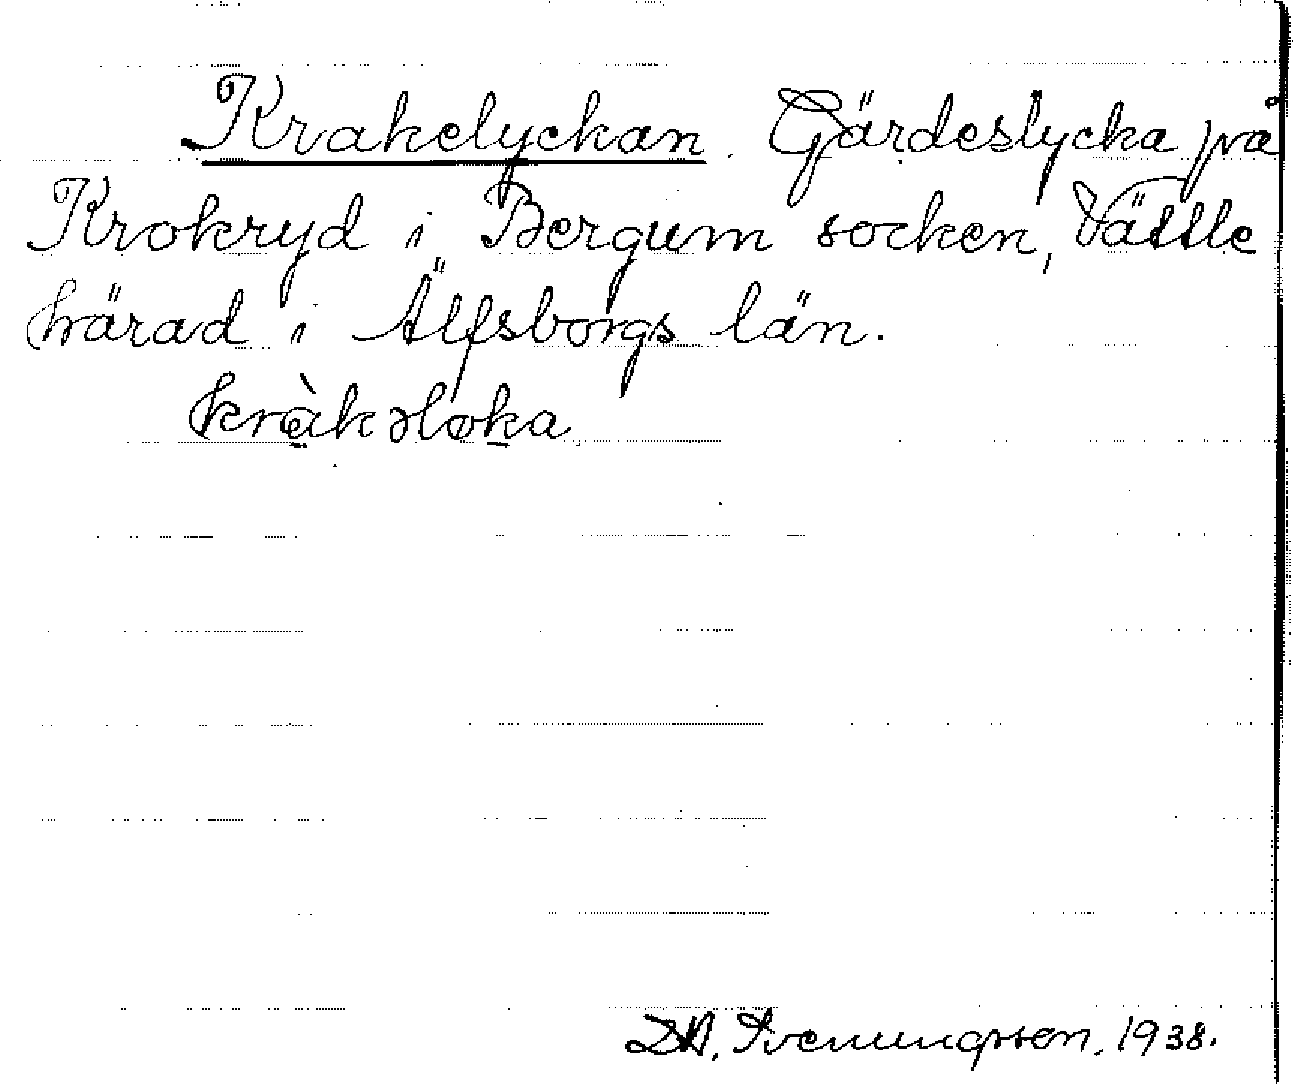 Krakelyckan. Gärdeslycka på
Krokryd i Bergum socken, Vättle
härad i Älfsborgs län.
kràkəløka
D.A. Svenungsson, 1938.